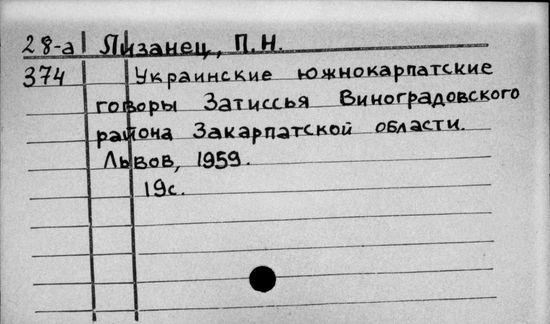 28-а Лизанец, П.Н.
374 Украинские южнокарпатские
говоры Затиссья Виноградовского
района Закарпатской области.
Львов, 1959.
19с.